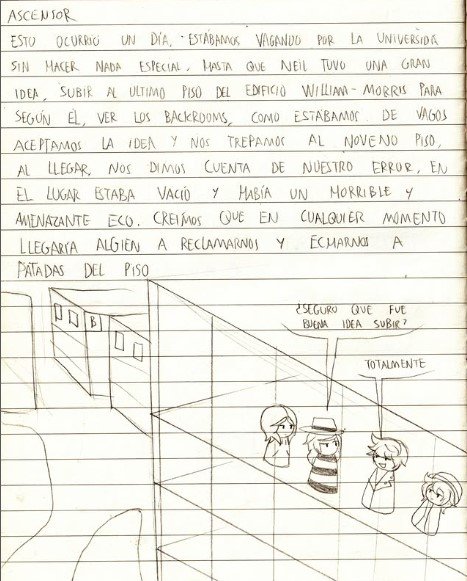 ASCENSOR
ESTO OCURRIO UN DÍA, ESTABAMOS VAGANDO POR LA UNIVERSIDA
SIN HACER NADA ESPECIAL, HASTA QUE NEIL TUVO UNA GRAN
IDEA, SUBIR AL ULTIMO PISO DEL EDIFICIO WILLIAM-MORRIS PARA
SEGÚN ÉL, VER LOS BACKROOMS, COMO ESTÁBAMOS DE VAGOS
ACEPTAMOS LA IDEA Y NOS TREPAMOS AL NOVENO PISO,
AL LLEGAR, NOS DIMOS CUENTA DE NUESTRO ERROR, EN
EL LUGAR ESTABA VACÍO Y HABÍA UN HORRIBLE Y
AMENAZANTE ECO. CREÍMOS QUE EN CUALQUIER MOMENTO
LLEGARÍA ALGIEN A RECLAMARNOS Y ECHARNOS A
PATADAS DEL PISO
¿SEGURO QUE FUE
BUENA IDEA SUBIR?
TOTALMENTE
B